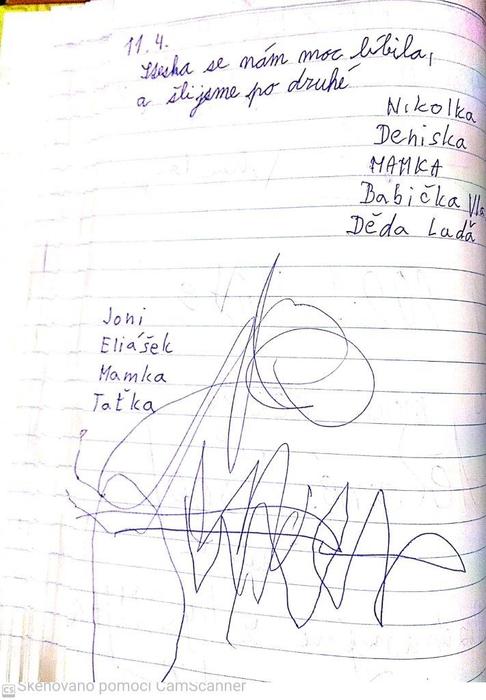 11.4.
Stezka se nám moc líbila,
a šli jsme po druhé
Nikolka
Deniska
MAMKA
Babička Vla
Děda Ladă
Joni
Eliášek
Mamka
Taťka
Skenováno pomocí CamScanner